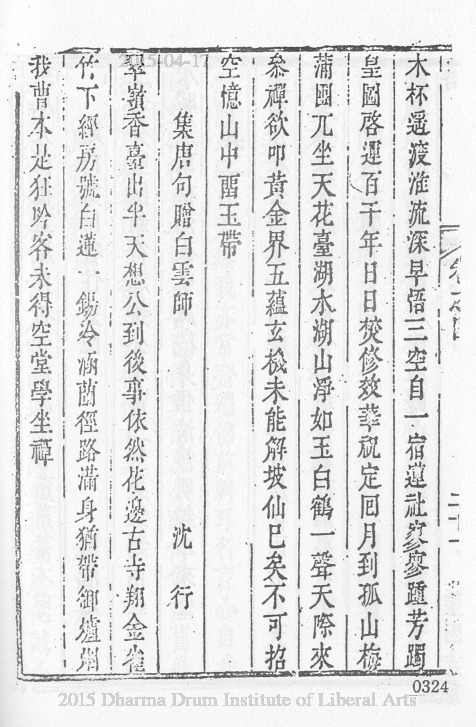 2015-04-17
木杯遥渡淮流深早悟三空自一宿蓮社寥寥踵芳躅
皇圖啓運百千年日日焚修效華祝定回月到孤山梅
蒲團兀坐天花臺湖水湖山淨如玉白鶴一聲天際來
叅禪欲叩黃金界五蘊玄機未能解坡仙已矣不可招
空憶山中畱玉帶
集唐句贈白雲師
沈行
翠嶺香臺出半天想公到後事依然花邊古寺翔金雀
竹下經房號白蓮一錫冷涵蘭徑路滿身猶帶御爐烟
我曹本是狂吟客未得空堂學坐禪
卷之四
二十一
0324
2015 Dharma Drum Institute of Liberal Arts